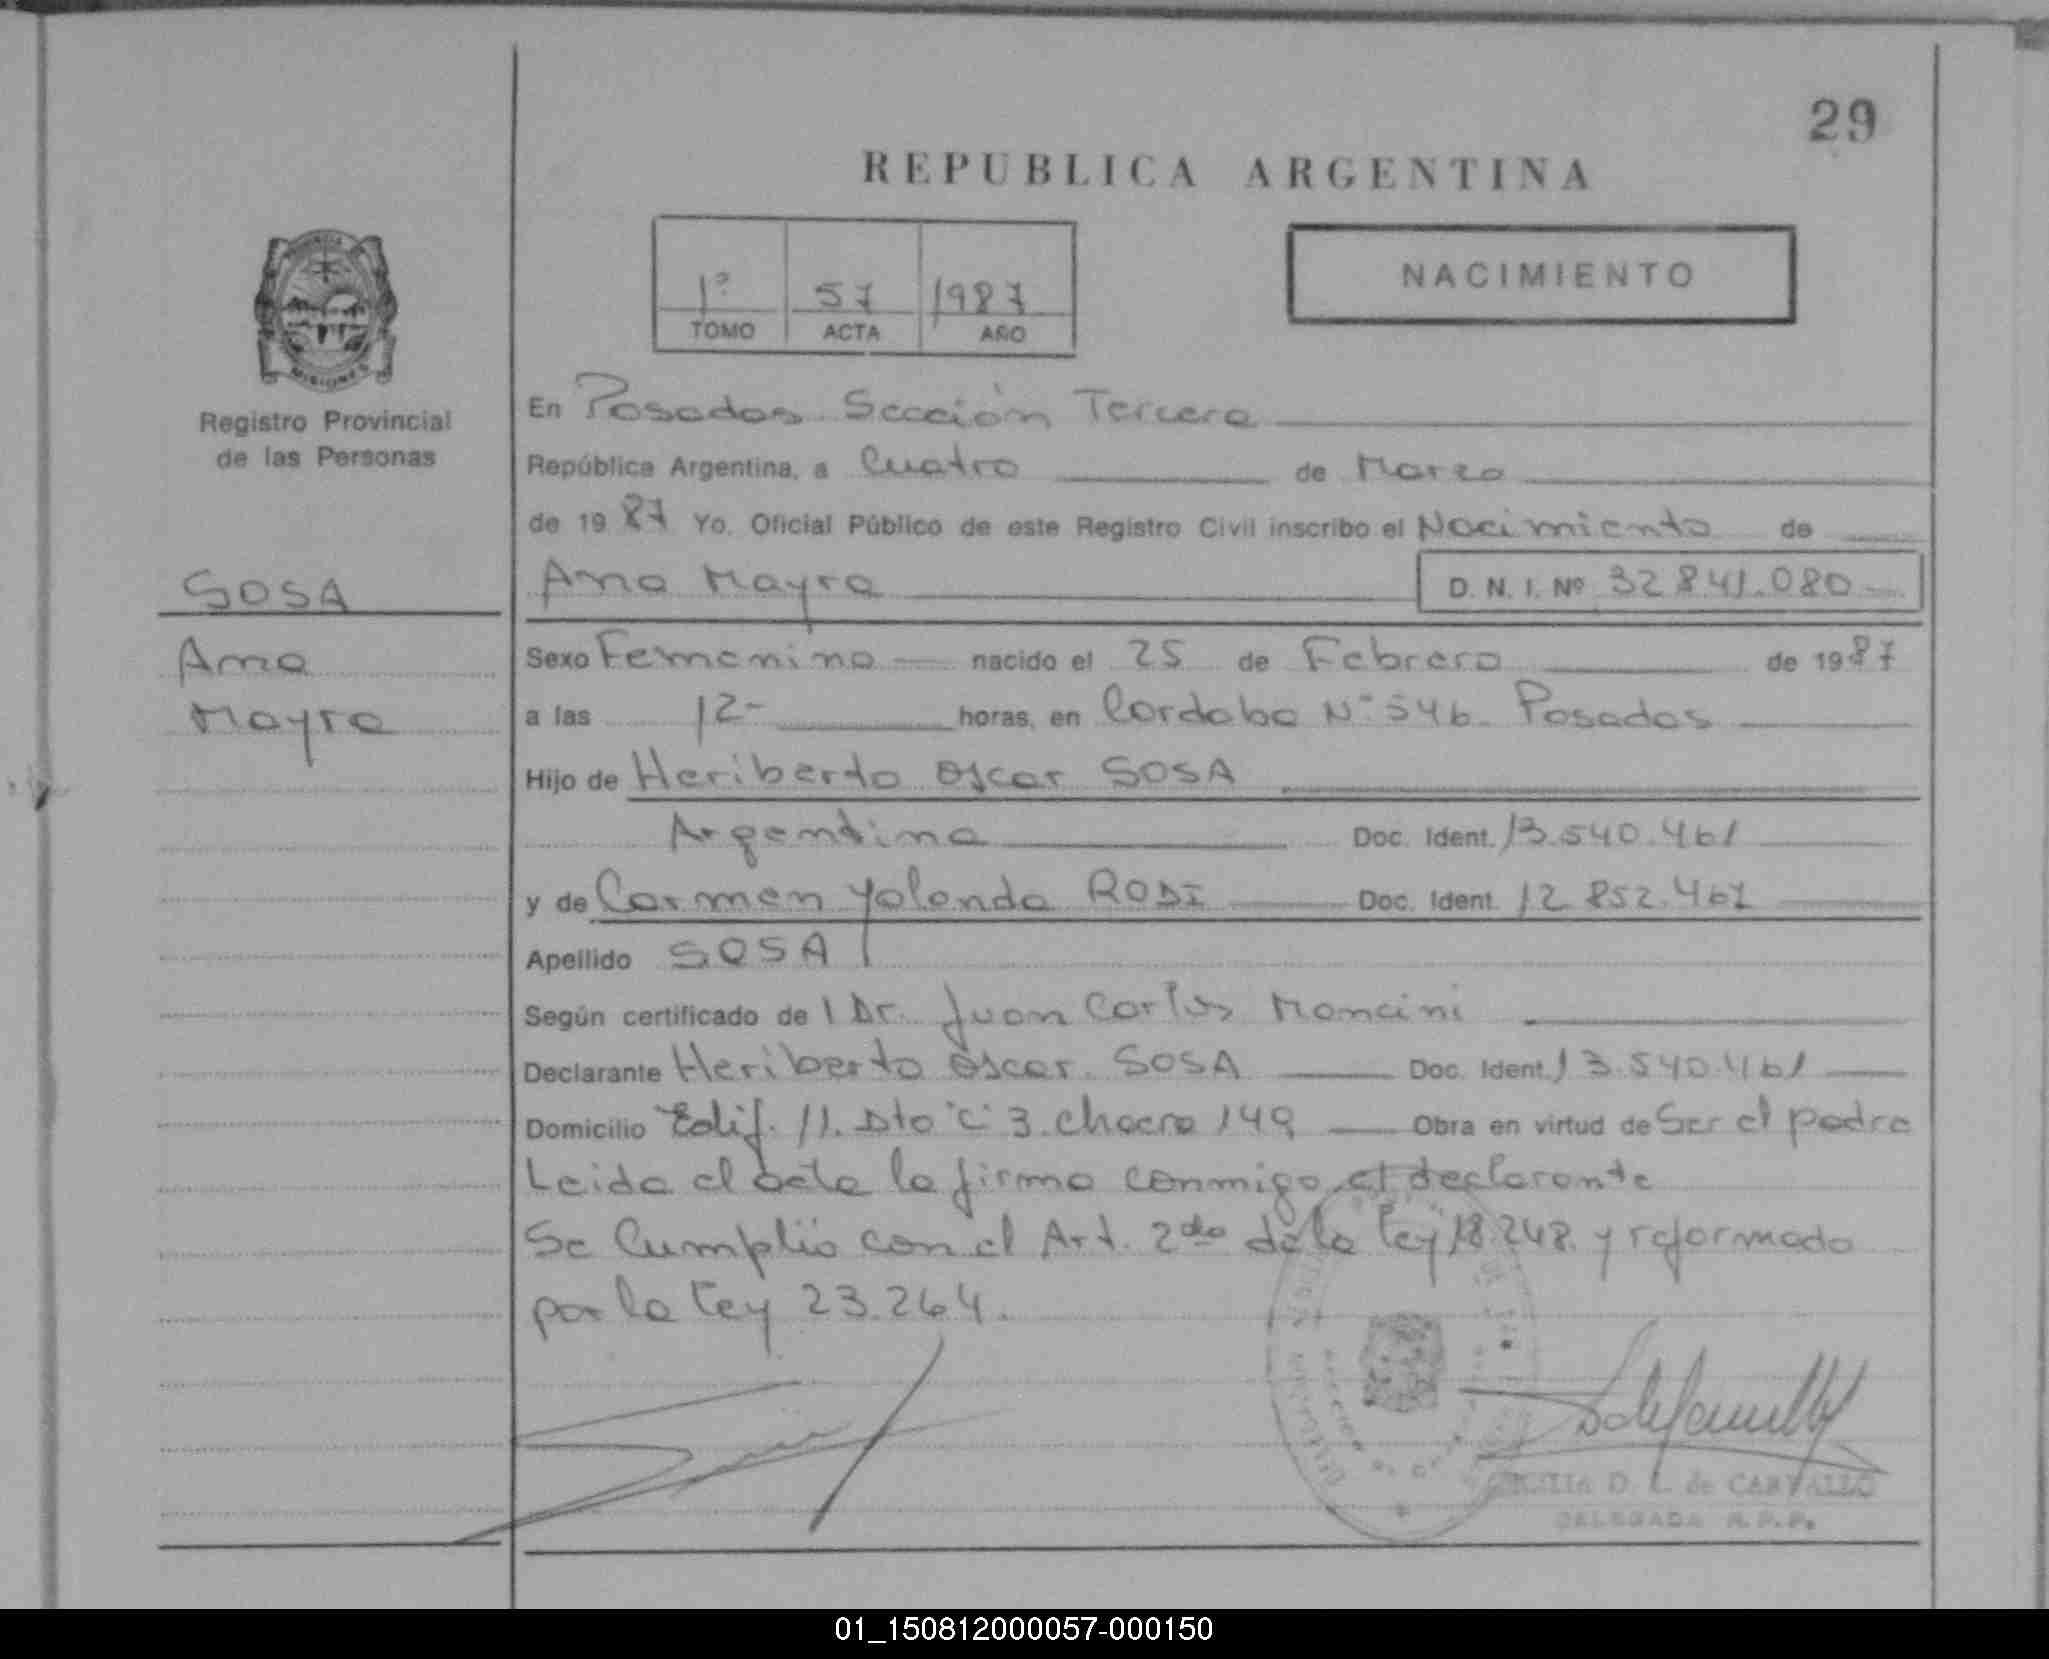 29
REPUBLICA ARGENTINA
1º 57 1987
TOMO ACTA AÑO
NACIMIENTO
MISIONES
Registro Provincial
de las Personas
En Posadas Sección Tercera
República Argentina, a Cuatro de Marzo
de 1987 Yo, Oficial Público de este Registro Civil inscribo el Nacimiento de
SOSA
Ana
Mayra
Ana Mayra D. N. I. Nº 32841.080
Sexo Femenino nacido el 25 de Febrero de 1987
a las 12- horas, en Cordoba Nº 546. Posadas
Hijo de Heriberto Oscar SOSA
Argentina Doc. Ident. 13.540.461
y de Carmen Yolanda RODI Doc. Ident. 12.852.467
Apellido SOSA
Según certificado de l Dr. Juan Carlos Mancini
Declarante Heriberto Oscar SOSA Doc. Ident. 13.540.461
Domicilio Edif. 11. Dto "C" 3. chacra 149 Obra en virtud de Ser el padre
Leida el acta la firma conmigo el declarante
Se Cumplió con el Art. 2do de la Ley 18.248. y reformado
por la Ley 23.264.
D. L. de CARVALLO
DELEGADA R.P.P.
01_150812000057-000150